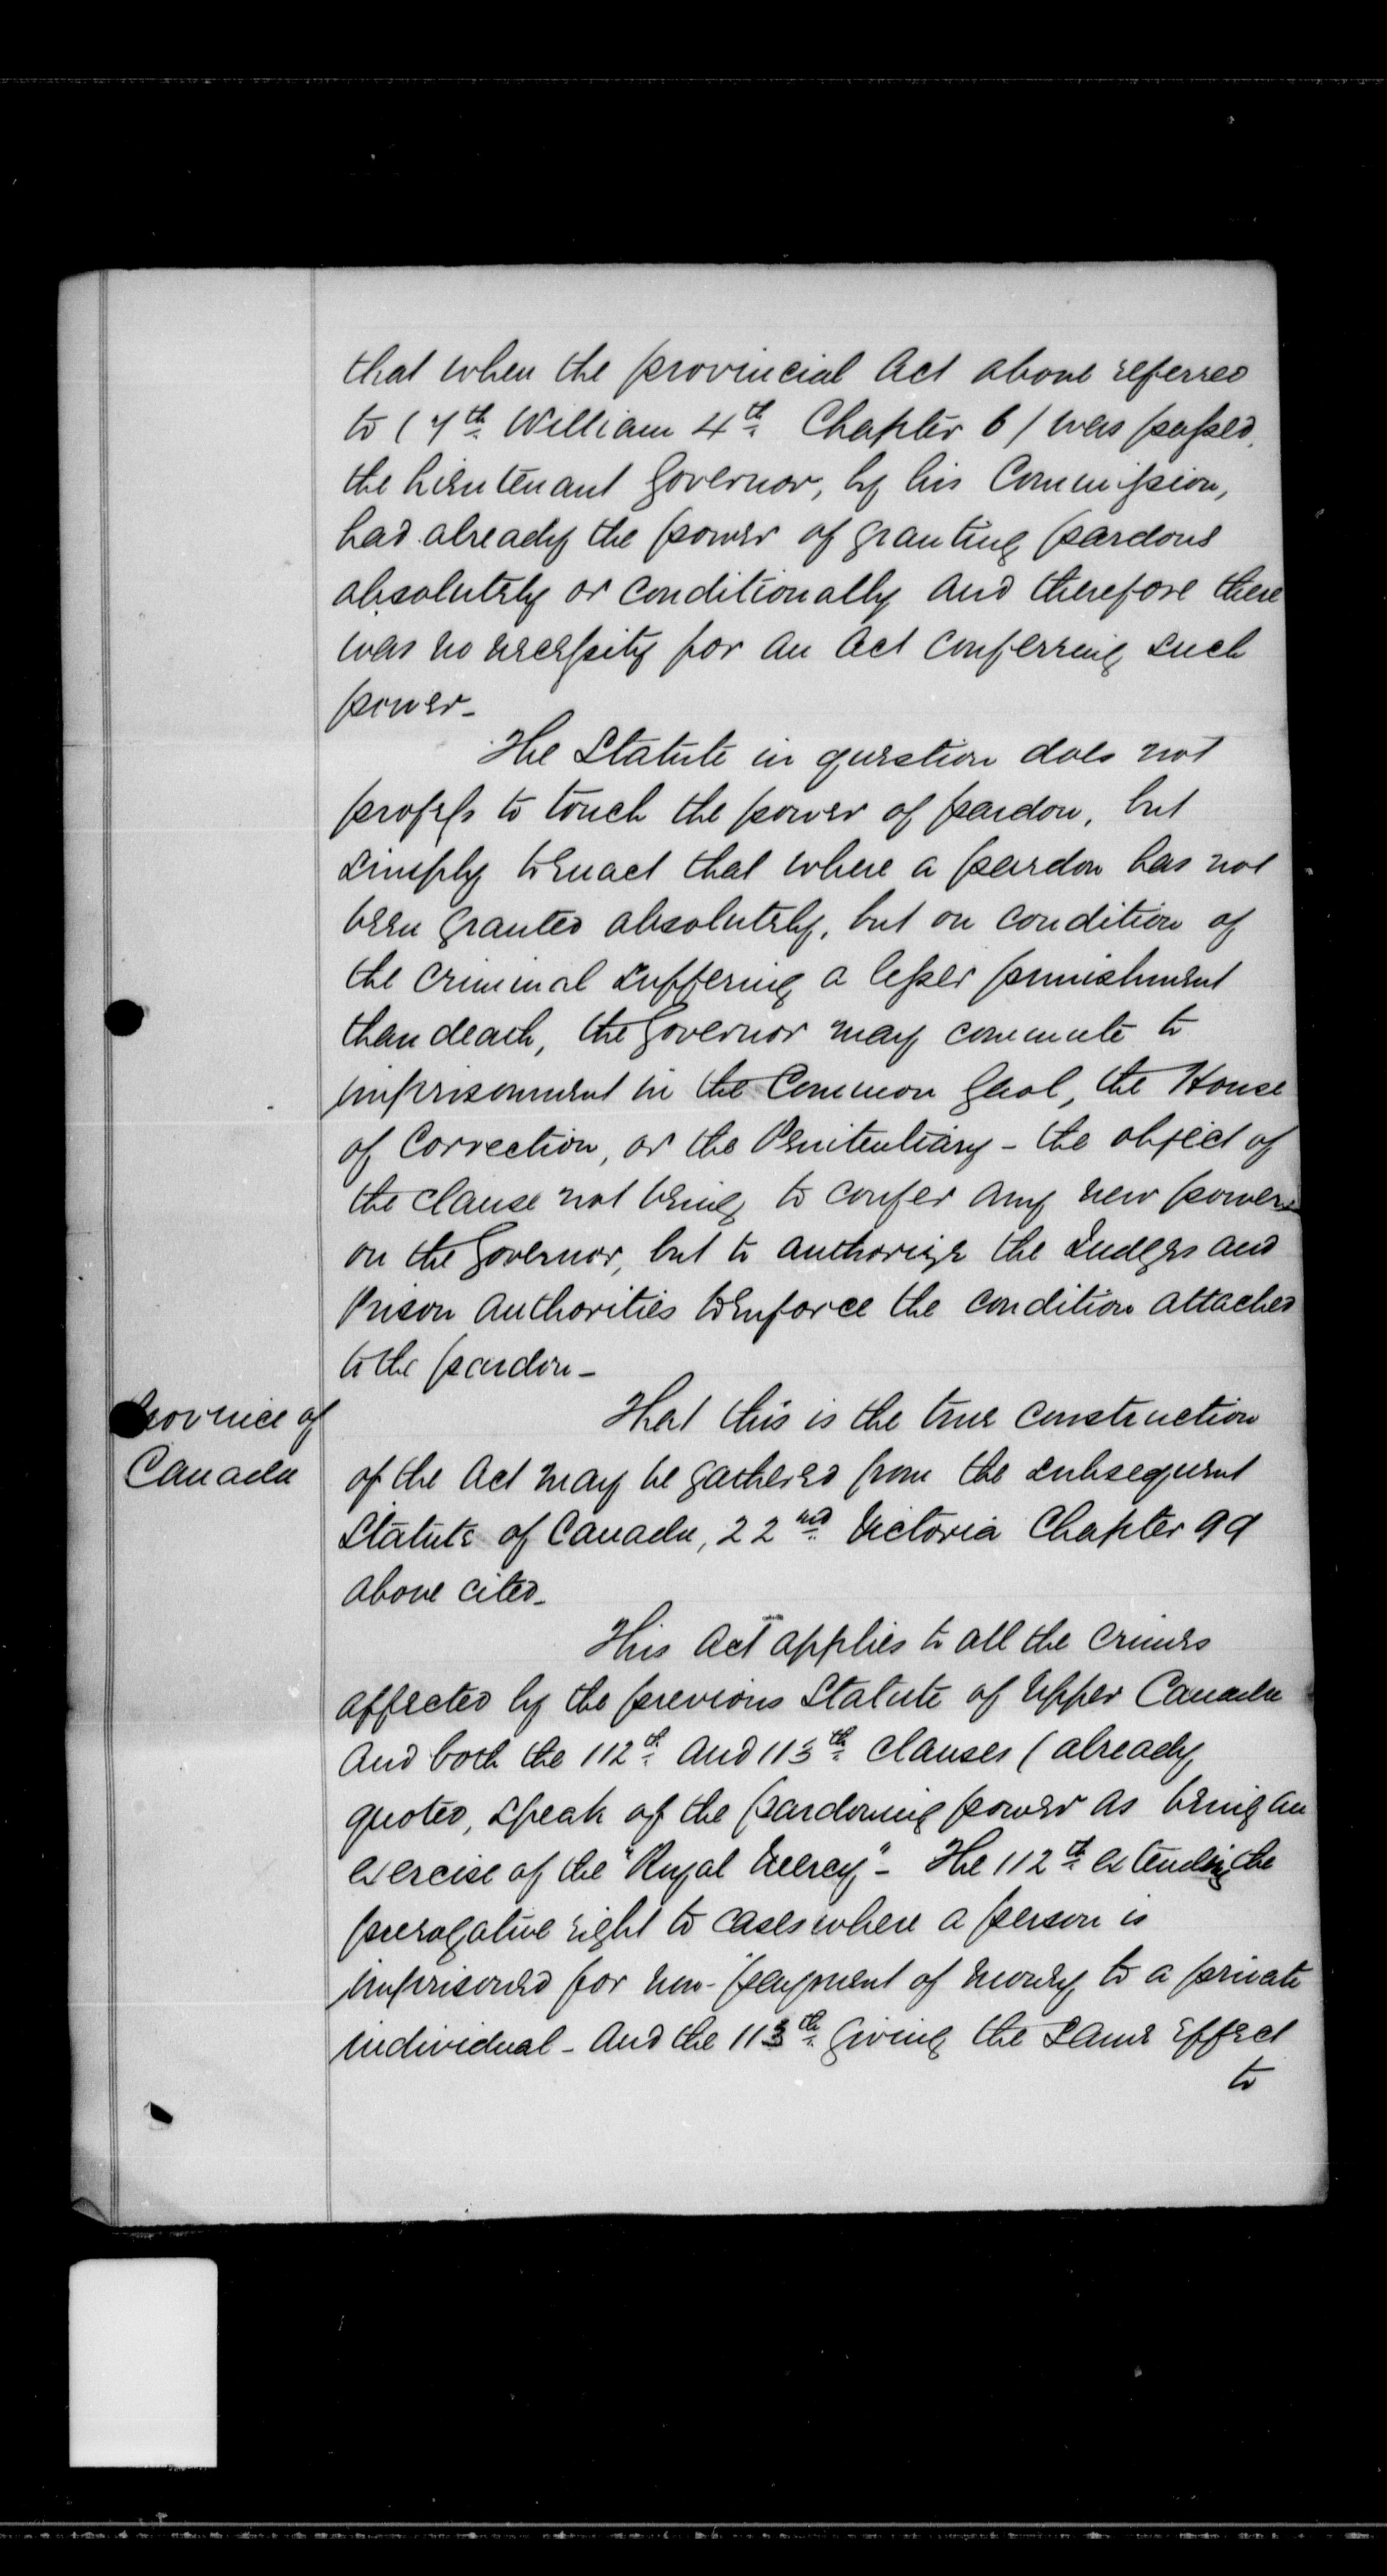 that when the provincial Act above referred
to (7th William 4th Chapter 6) was passed,
the Lieutenant Governor, by his Commission,
had already the power of granting pardons
absolutely or conditionally and therefore there
was no necessity for an Act conferring such
power -
The Statute in question does not
profess to touch the power of pardon, but
simply to enact that where a pardon has not
been granted absolutely, but on condition of
the criminal suffering a lesser punishment
than death, the Governor may commute to
imprisonment in the Common Gaol, the House
of Correction, or the Penitentiary - the object of
the clause not being to confer any new powers
on the Governor, but to authorize the Judges and
Prison Authorities to enforce the condition attached
to the pardon -
Province of
Canada
That this is the true construction
of the Act may be gathered from the subsequent
Statute of Canada, 22nd Victoria Chapter 99
above cited -
This Act applies to all the crimes
affected by the previous Statute of Upper Canada
and both the 112th and 113th clauses (already
quoted, speak of the pardoning power as being an
exercise of the "Royal Mercy" - The 112th extending the
prerogative right to cases where a person is
imprisoned for non-payment of money to a private
individual - And the 113th giving the same effect
to